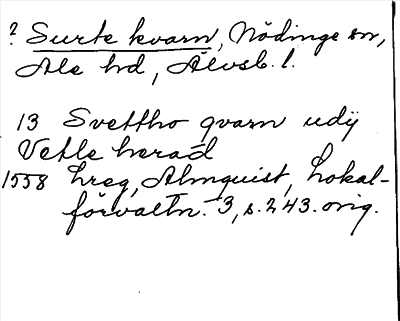 ? Surte kvarn, Nödinge sn,
Ale hd, Älvsb. l.
13 Svettho qvarn udij
Vetle herad
1558 Lreg, Almquist, Lokal-
förvaltn. 3, s. 243. orig.